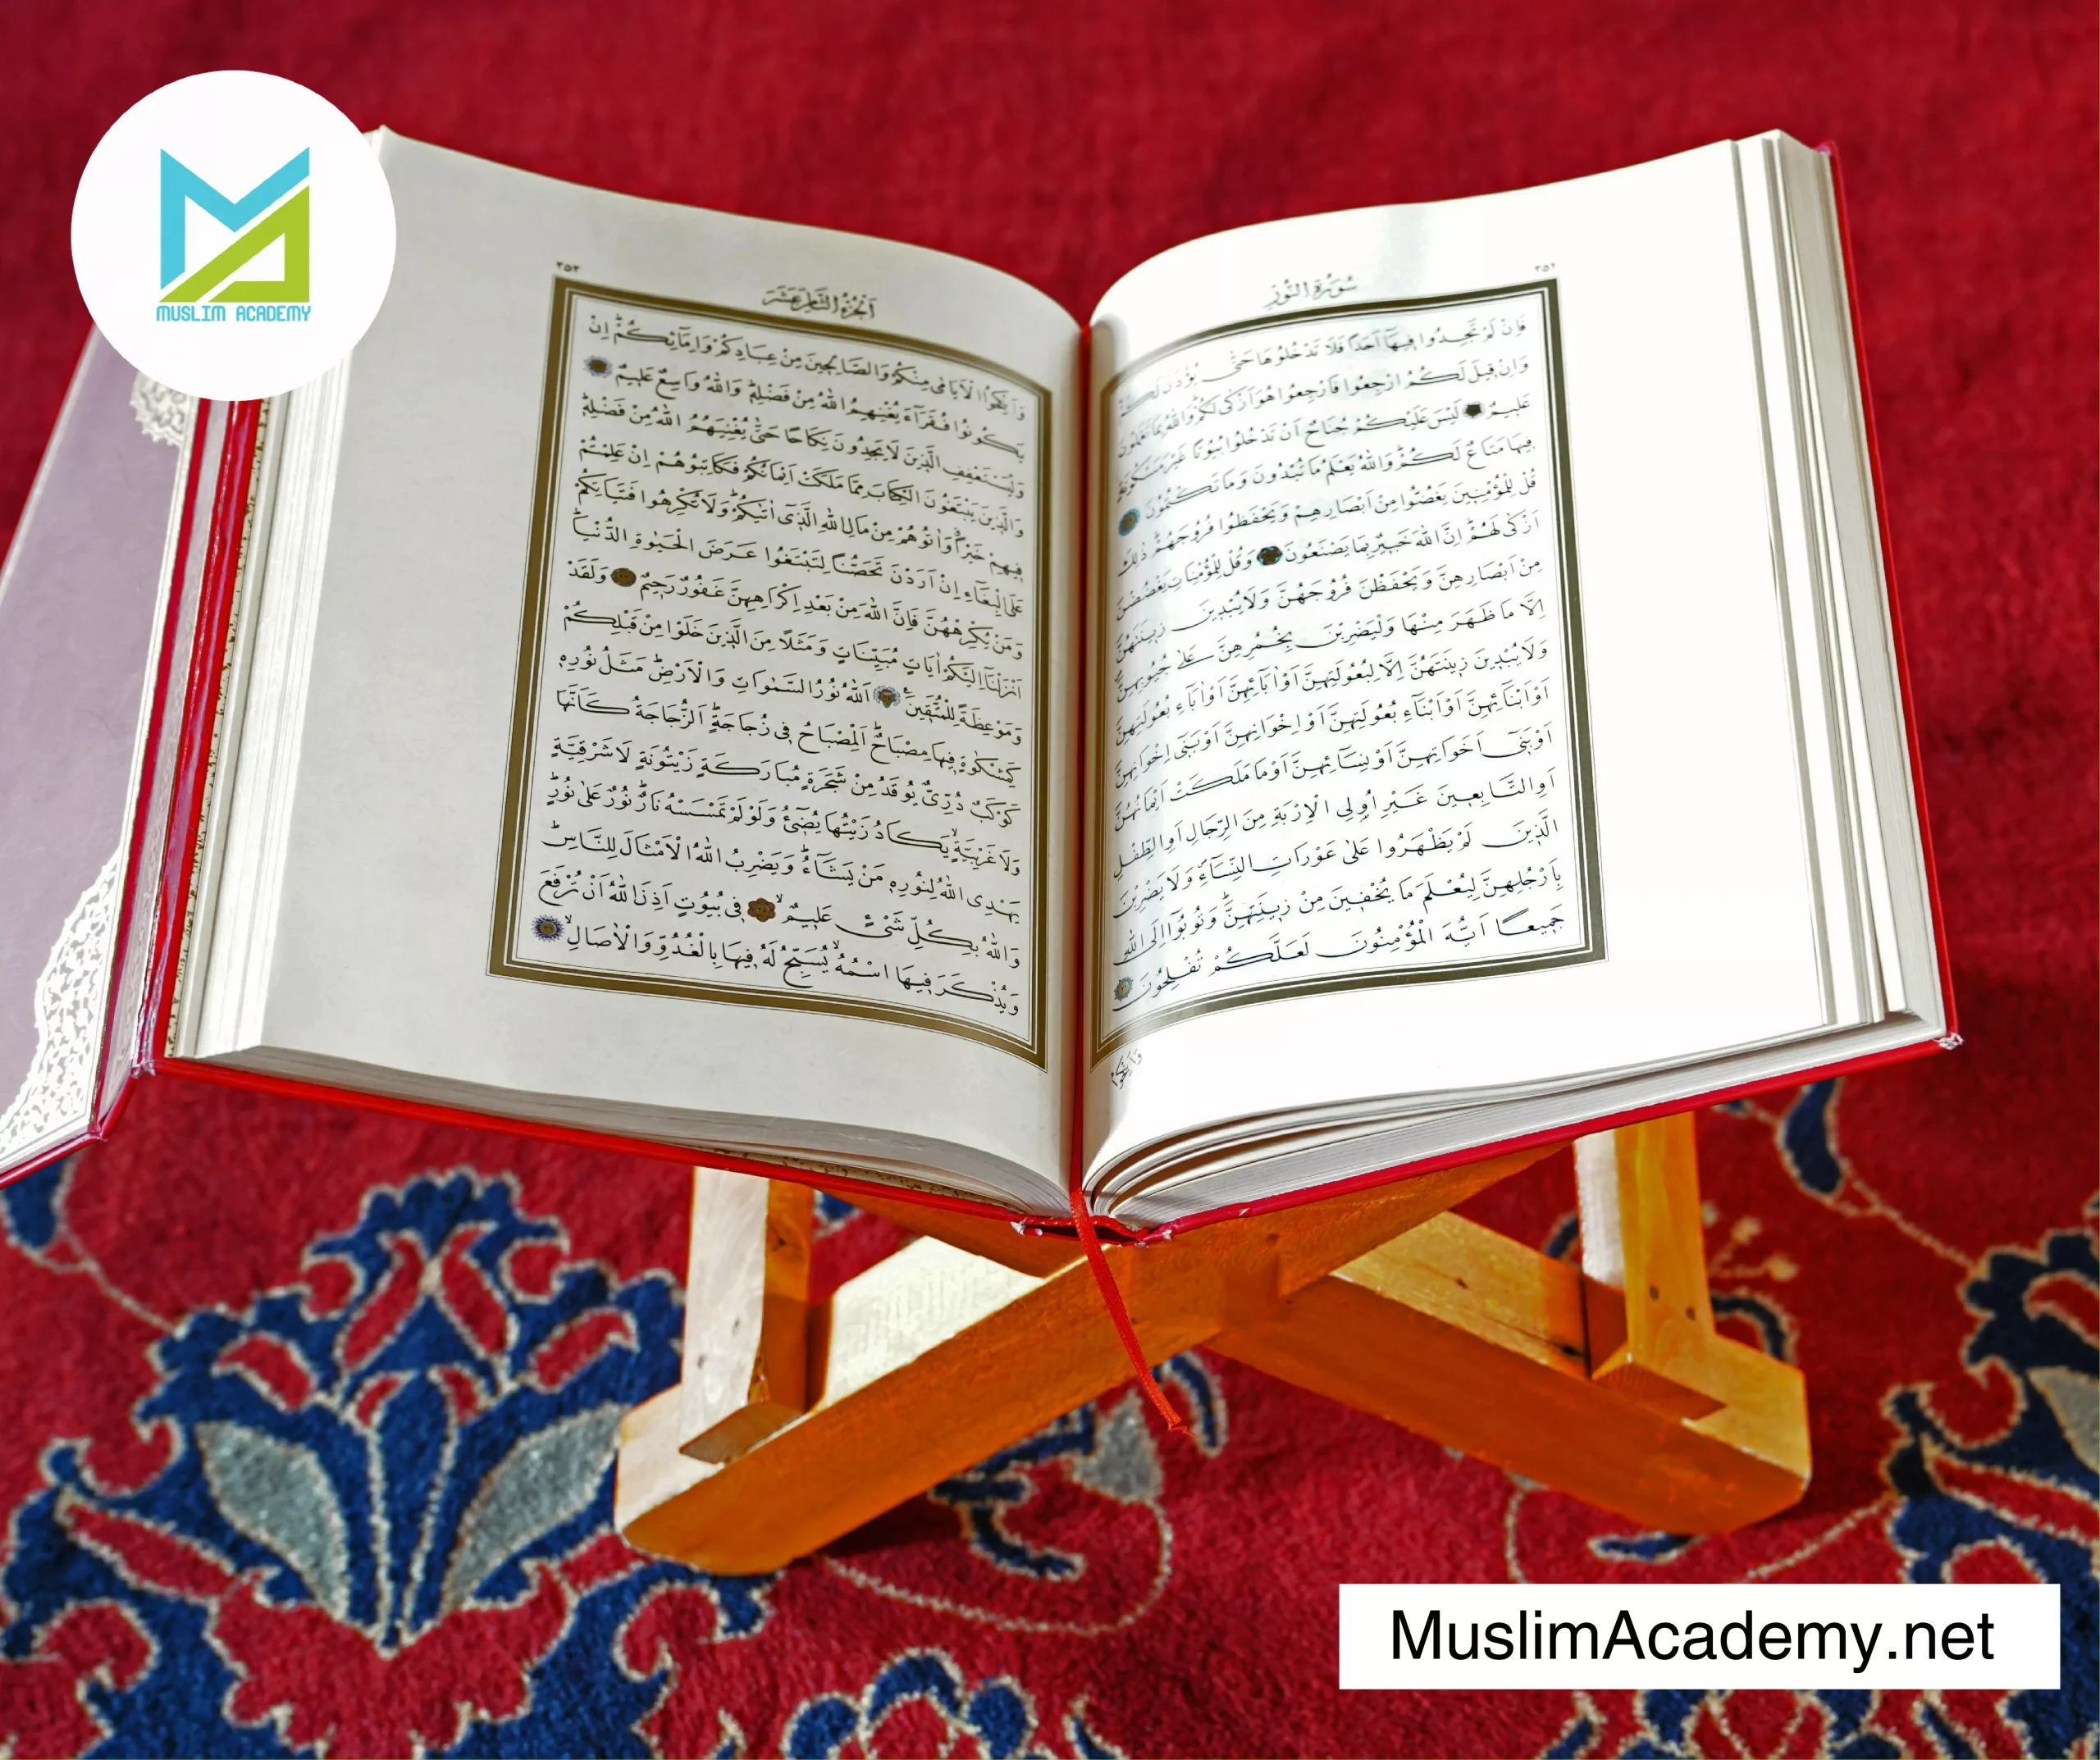 MUSLIM ACADEMY
٣٥٢
سُورَةُ النُّورِ
فَاِنْ لَمْ تَجِدُوا فِيهَٓا اَحَدًا فَلَا تَدْخُلُوهَا حَتّٰى يُؤْذَنَ لَكُمْ
وَاِنْ قِيلَ لَكُمُ ارْجِعُوا فَارْجِعُوا هُوَ اَزْكٰى لَكُمْ وَاللّٰهُ بِمَا تَعْمَلُونَ
عَلِيمٌ لَيْسَ عَلَيْكُمْ جُنَاحٌ اَنْ تَدْخُلُوا بُيُوتًا غَيْرَ مَسْكُونَةٍ
فِيهَا مَتَاعٌ لَكُمْ وَاللّٰهُ يَعْلَمُ مَا تُبْدُونَ وَمَا تَكْتُمُونَ
قُلْ لِلْمُؤْمِنِينَ يَغُضُّوا مِنْ اَبْصَارِهِمْ وَيَحْفَظُوا فُرُوجَهُمْ ذٰلِكَ
اَزْكٰى لَهُمْ اِنَّ اللّٰهَ خَبِيرٌ بِمَا يَصْنَعُونَ وَقُلْ لِلْمُؤْمِنَاتِ يَغْضُضْنَ
مِنْ اَبْصَارِهِنَّ وَيَحْفَظْنَ فُرُوجَهُنَّ وَلَا يُبْدِينَ زِينَتَهُنَّ
اِلَّا مَا ظَهَرَ مِنْهَا وَلْيَضْرِبْنَ بِخُمُرِهِنَّ عَلٰى جُيُوبِهِنَّ
وَلَا يُبْدِينَ زِينَتَهُنَّ اِلَّا لِبُعُولَتِهِنَّ اَوْ اٰبَٓائِهِنَّ اَوْ اٰبَٓاءِ بُعُولَتِهِنَّ
اَوْ اَبْنَٓائِهِنَّ اَوْ اَبْنَٓاءِ بُعُولَتِهِنَّ اَوْ اِخْوَانِهِنَّ اَوْ بَنِٓى اِخْوَانِهِنَّ
اَوْ بَنِٓى اَخَوَاتِهِنَّ اَوْ نِسَٓائِهِنَّ اَوْ مَا مَلَكَتْ اَيْمَانُهُنَّ
اَوِ التَّابِعِينَ غَيْرِ اُو۬لِى الْاِرْبَةِ مِنَ الرِّجَالِ اَوِ الطِّفْلِ
الَّذِينَ لَمْ يَظْهَرُوا عَلٰى عَوْرَاتِ النِّسَٓاءِ وَلَا يَضْرِبْنَ
بِاَرْجُلِهِنَّ لِيُعْلَمَ مَا يُخْفِينَ مِنْ زِينَتِهِنَّ وَتُوبُٓوا اِلَى اللّٰهِ
جَمِيعًا اَيُّهَ الْمُؤْمِنُونَ لَعَلَّكُمْ تُفْلِحُونَ
وَاَنْكِحُوا
٣٥٣
اَلْجُزْءُ الثَّامِنَ عَشَرَ
وَاَنْكِحُوا الْاَيَامٰى مِنْكُمْ وَالصَّالِحِينَ مِنْ عِبَادِكُمْ وَاِمَٓائِكُمْ اِنْ
يَكُونُوا فُقَرَٓاءَ يُغْنِهِمُ اللّٰهُ مِنْ فَضْلِهِ وَاللّٰهُ وَاسِعٌ عَلِيمٌ
وَلْيَسْتَعْفِفِ الَّذِينَ لَا يَجِدُونَ نِكَاحًا حَتّٰى يُغْنِيَهُمُ اللّٰهُ مِنْ فَضْلِهِ
وَالَّذِينَ يَبْتَغُونَ الْكِتَابَ مِمَّا مَلَكَتْ اَيْمَانُكُمْ فَكَاتِبُوهُمْ اِنْ عَلِمْتُمْ
فِيهِمْ خَيْرًا وَاٰتُوهُمْ مِنْ مَالِ اللّٰهِ الَّذِٓى اٰتٰيكُمْ وَلَا تُكْرِهُوا فَتَيَاتِكُمْ
عَلَى الْبِغَٓاءِ اِنْ اَرَدْنَ تَحَصُّنًا لِتَبْتَغُوا عَرَضَ الْحَيٰوةِ الدُّنْيَا
وَمَنْ يُكْرِهْهُنَّ فَاِنَّ اللّٰهَ مِنْ بَعْدِ اِكْرَاهِهِنَّ غَفُورٌ رَحِيمٌ وَلَقَدْ
اَنْزَلْنَٓا اِلَيْكُمْ اٰيَاتٍ مُبَيِّنَاتٍ وَمَثَلًا مِنَ الَّذِينَ خَلَوْا مِنْ قَبْلِكُمْ
وَمَوْعِظَةً لِلْمُتَّقِينَ اَللّٰهُ نُورُ السَّمٰوَاتِ وَالْاَرْضِ مَثَلُ نُورِهِ
كَمِشْكٰوةٍ فِيهَا مِصْبَاحٌ اَلْمِصْبَاحُ فِى زُجَاجَةٍ اَلزُّجَاجَةُ كَاَنَّهَا
كَوْكَبٌ دُرِّىٌّ يُوقَدُ مِنْ شَجَرَةٍ مُبَارَكَةٍ زَيْتُونَةٍ لَا شَرْقِيَّةٍ
وَلَا غَرْبِيَّةٍ يَكَادُ زَيْتُهَا يُضِٓىءُ وَلَوْ لَمْ تَمْسَسْهُ نَارٌ نُورٌ عَلٰى نُورٍ
يَهْدِى اللّٰهُ لِنُورِهِ مَنْ يَشَٓاءُ وَيَضْرِبُ اللّٰهُ الْاَمْثَالَ لِلنَّاسِ
وَاللّٰهُ بِكُلِّ شَىْءٍ عَلِيمٌ فِى بُيُوتٍ اَذِنَ اللّٰهُ اَنْ تُرْفَعَ
وَيُذْكَرَ فِيهَا اسْمُهُ يُسَبِّحُ لَهُ فِيهَا بِالْغُدُوِّ وَالْاٰصَالِ
MuslimAcademy.net